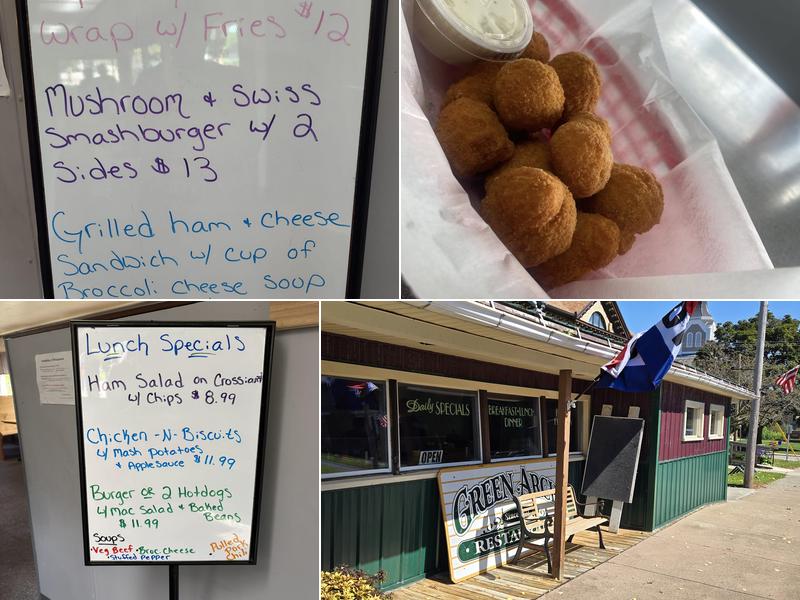 Wrap w/ Fries $12
Mushroom & Swiss
Smashburger w/ 2
Sides $13
Grilled ham & cheese
Sandwich w/ cup of
Broccoli cheese soup
Lunch Specials
Ham Salad on Crossiant
w/ Chips $8.99
Chicken-N-Biscuits
w/ Mash potatoes
& Applesauce $11.99
Burger or 2 Hotdogs
w/ Mac Salad & Baked
Beans
$11.99
Soups
•Veg Beef •Broc. Cheese
•Stuffed Pepper
•Pulled
Pork
Chili
Daily SPECIALS
BREAKFAST-LUNCH-
DINNER
OPEN
GREEN ARC
Since
RESTA